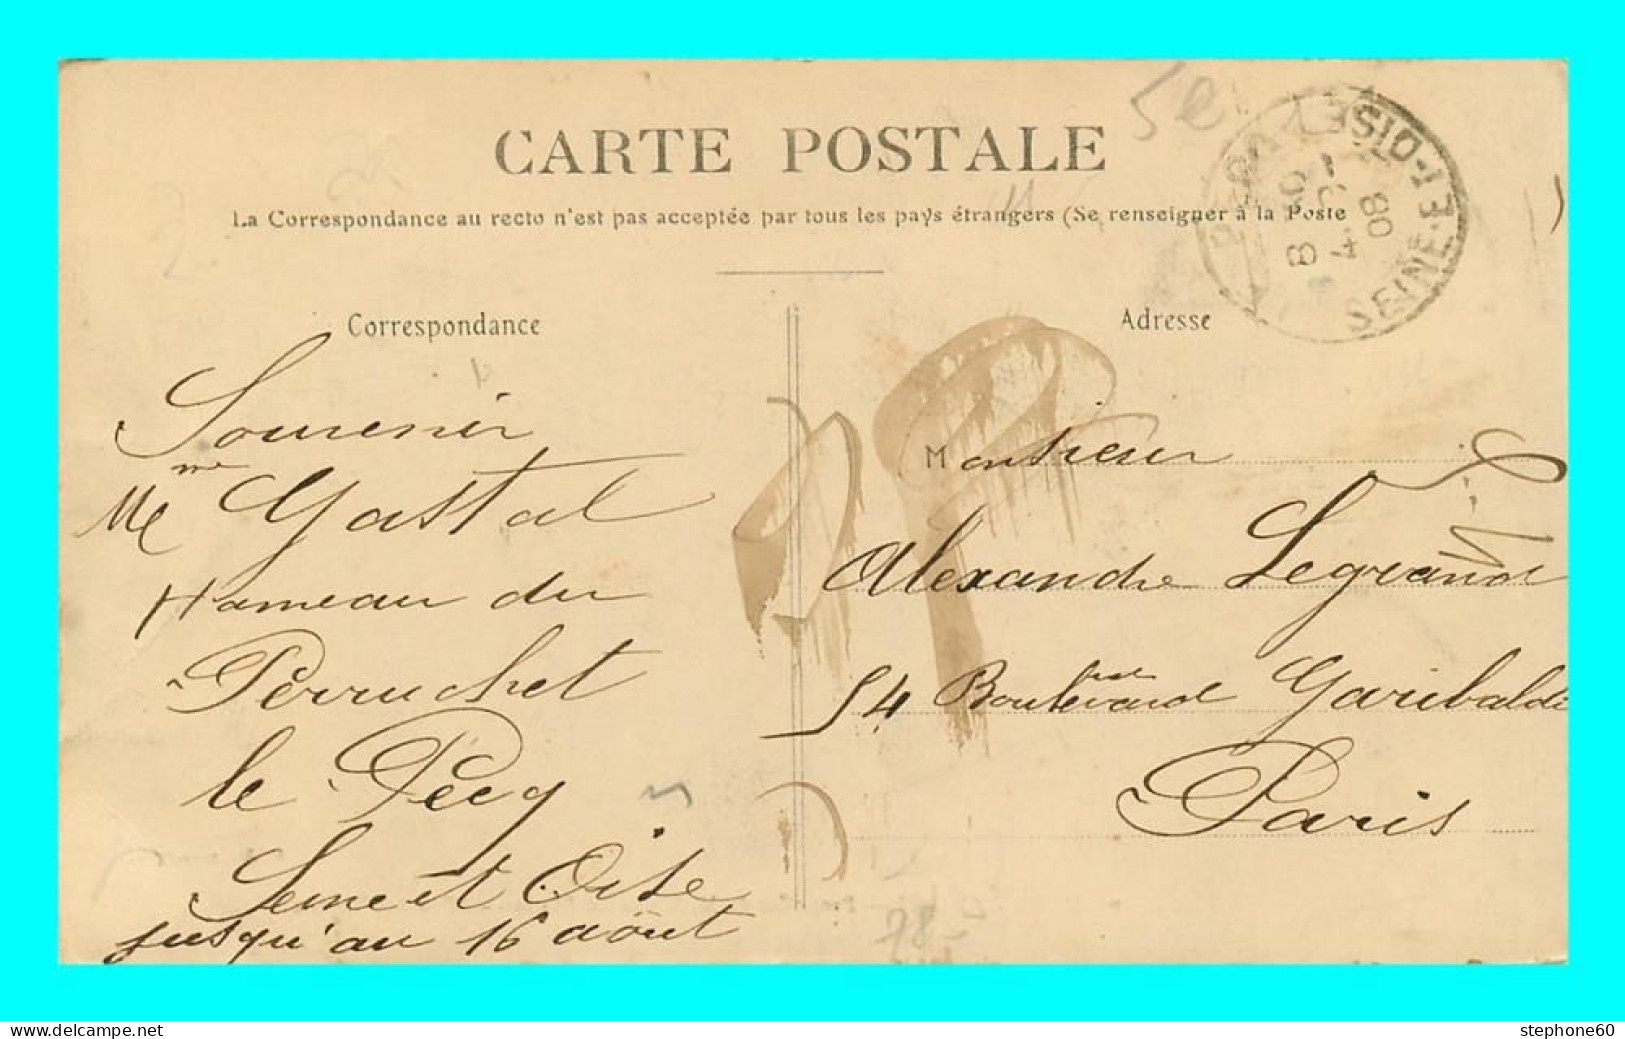 CARTE POSTALE
La Correspondance au recto n'est pas acceptée par tous les pays étrangers (Se renseigner à la Poste
Correspondance
Souvenir
Mme Gastal
Hameau du
Perruchet
le Pecq
Seine et Oise
jusqu'au 16 août
Adresse
Monsieur
Alexandre Legrand
54 Boulevard Garibaldi
Paris
SEINE-ET-OISE
8
4
08
www.delcampe.net
stephone60